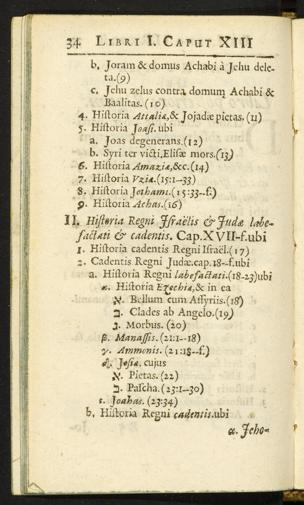 34 LIBRI I. CAPUT XIII
b. Joram & domus Achabi à Jehu dele-
ta.(9)
c. Jehu zelus contra domum Achabi &
Baalitas.(10)
4. Historia Attaliæ,& Jojadæ pietas.(11)
5. Historia Joasi.ubi
a. Joas degenerans.(12)
b. Syri ter victi,Elisæ mors.(13)
6. Historia Amaziæ,&c.(14)
7. Historia Vziæ.(15:1--33)
8. Historia Jothami.(15:33--f.)
9. Historia Achas.(16)
II. Historia Regni Israëlis & Judæ labe-
factati & cadentis. Cap.XVII-f.ubi
1. Historia cadentis Regni Israël.(17)
2. Cadentis Regni Judæ.cap.18--f.ubi
a. Historia Regni labefactati.(18-23)ubi
α. Historia Ezechiæ,& in ea
א. Bellum cum Assyriis.(18)
ב. Clades ab Angelo.(19)
ג. Morbus. (20)
β. Manassis.(21:1--18)
γ. Ammonis. (21:18--f.)
δ. Josiæ. cujus
א. Pietas.(22)
ב. Pascha.(23:1--30)
ε. Joahas.(23:34)
b. Historia Regni cadentis.ubi
α. Jeho-